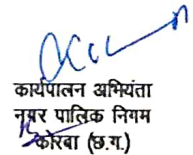 कार्यपालन अभियंता
नगर पालिक निगम
कोरबा (छ.ग.)